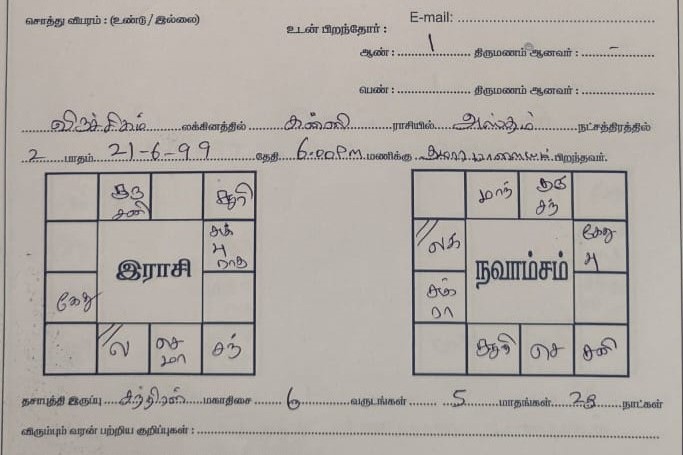 சொத்து விபரம் : (உண்டு / இல்லை)
E-mail:
உடன் பிறந்தோர் :
ஆண் : 1 திருமணம் ஆனவர் : -
பெண் : திருமணம் ஆனவர் :
விருச்சிகம் லக்கினத்தில் கன்னி ராசியில் அஸ்தம் நட்சத்திரத்தில்
2 பாதம் 21-6-99 தேதி 6.00PM மணிக்கு பிறந்தவர்.
குரு மாந் குரு
சனி சூரி சந்
சுக் கேது
பு லக் பு
ராகு
இராசி நவாம்சம்
கேது சுக்
ரா
ல செ சந் சூரி செ சனி
மா
தசாபுத்தி இருப்பு சந்திரன் மகாதிசை 6 வருடங்கள் 5 மாதங்கள் 28 நாட்கள்
விரும்பும் வரன் பற்றிய குறிப்புகள் :